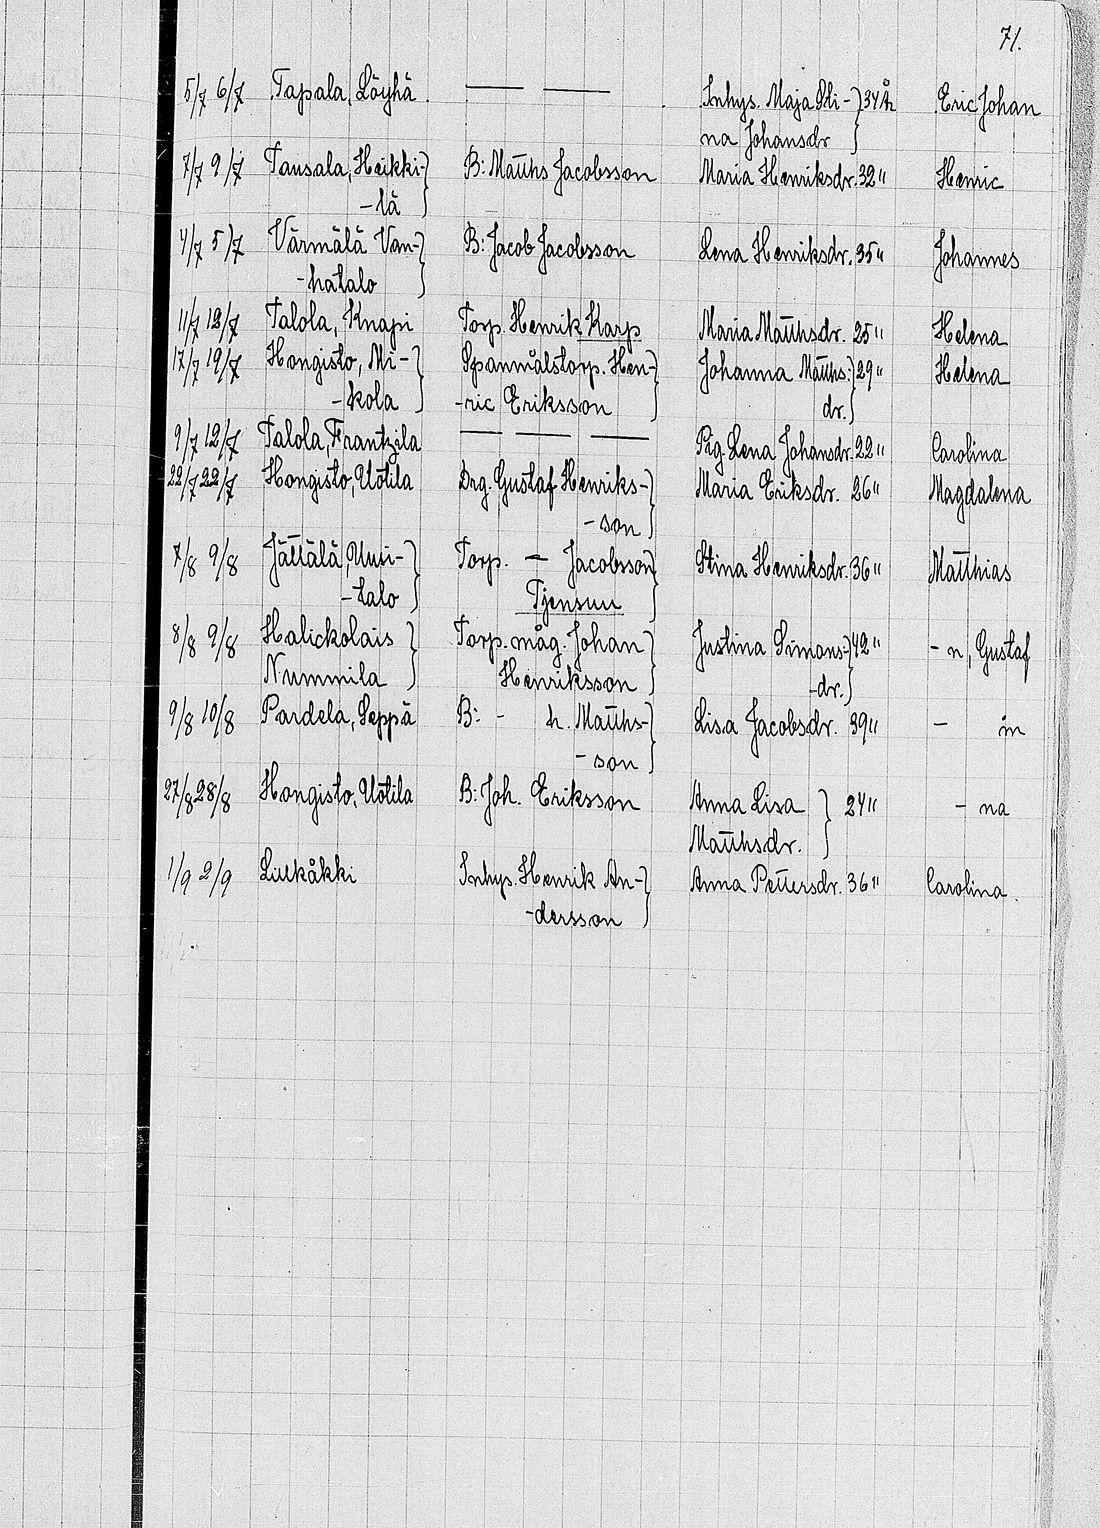 71.
5/7 6/7 Tapala, Löyhä. — — Inhys. Maja Sti- } 34 År Eric Johan
na Johansdr
7/7 9/7 Tausala, Heikki- } B: Matths Jacobsson Maria Henriksdr. 32 " Henric
-lä
4/7 5/7 Värmälä Van- } B: Jacob Jacobsson Lena Henriksdr. 35 " Johannes
-hatalo
11/7 12/7 Talola, Knapi Torp. Henrik Karp Maria Matthsdr. 25 " Helena
17/7 19/7 Hongisto, Mi- } Spanmålstorp. Hen- } Johanna Matths: } 29 " Helena
-kola -ric Eriksson dr.
9/7 12/7 Talola, Frantzila — — — Pig. Lena Johansdr. 22 " Carolina
22/7 22/7 Hongisto, Uotila Drg. Gustaf Henriks- } Maria Eriksdr. 26 " Magdalena
-son
7/8 9/8 Jättälä, Uusi- } Torp. — Jacobsson } Stina Henriksdr. 36 " Matthias
-talo Tjensuu
8/8 9/8 Halickolais } Torp. måg. Johan } Justina Simons- } 42 " - n, Gustaf
Nummila Henriksson -dr.
9/8 10/8 Pardela, Seppä B: - h. Matths- } Lisa Jacobsdr. 39 " - in
-son
27/8 28/8 Hongisto, Uotila B: Joh. Eriksson Anna Lisa } 24 " - na
Matthsdr.
1/9 2/9 Liukåkki Inhys. Henrik An- } Anna Pettersdr. 36 " Carolina.
-dersson